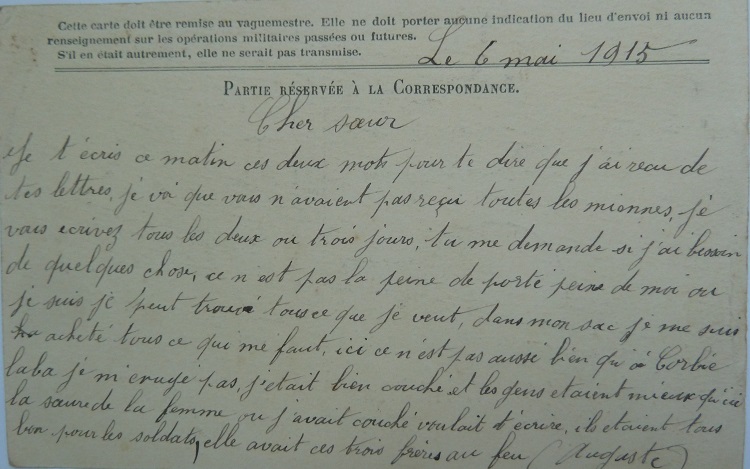 Cette carte doit être remise au vaguemestre. Elle ne doit porter aucune indication du lieu d'envoi ni aucun
renseignement sur les opérations militaires passées ou futures.
S'il en était autrement, elle ne serait pas transmise.
Le 6 mai 1915
PARTIE RÉSERVÉE À LA CORRESPONDANCE.
Cher sœur
Je t'écris ce matin ces deux mots pour te dire que j'ai recu de
tes lettres, je voi que vous n'avaient pas reçu toutes les miennes, je
vous ecrivez tous les deux ou trois jours, tu me demande si j'ai besoin
de quelques chose, ce n'est pas la peine de porté peine de moi ou
je suis je peut trouvé tous ce que je veut, dans mon sac je me suis
acheté tous ce qui me faut, ici ce n'est pas aussi bien qu'à Corbie
laba je m'enuyé pas, j'etait bien couché et les gens etaient mieux qu'ici
la sœur de la femme ou j'avait couché voulait t'écrire, ils etaient tous
bon pour les soldats, elle avait ces trois frères au feu (Auguste)